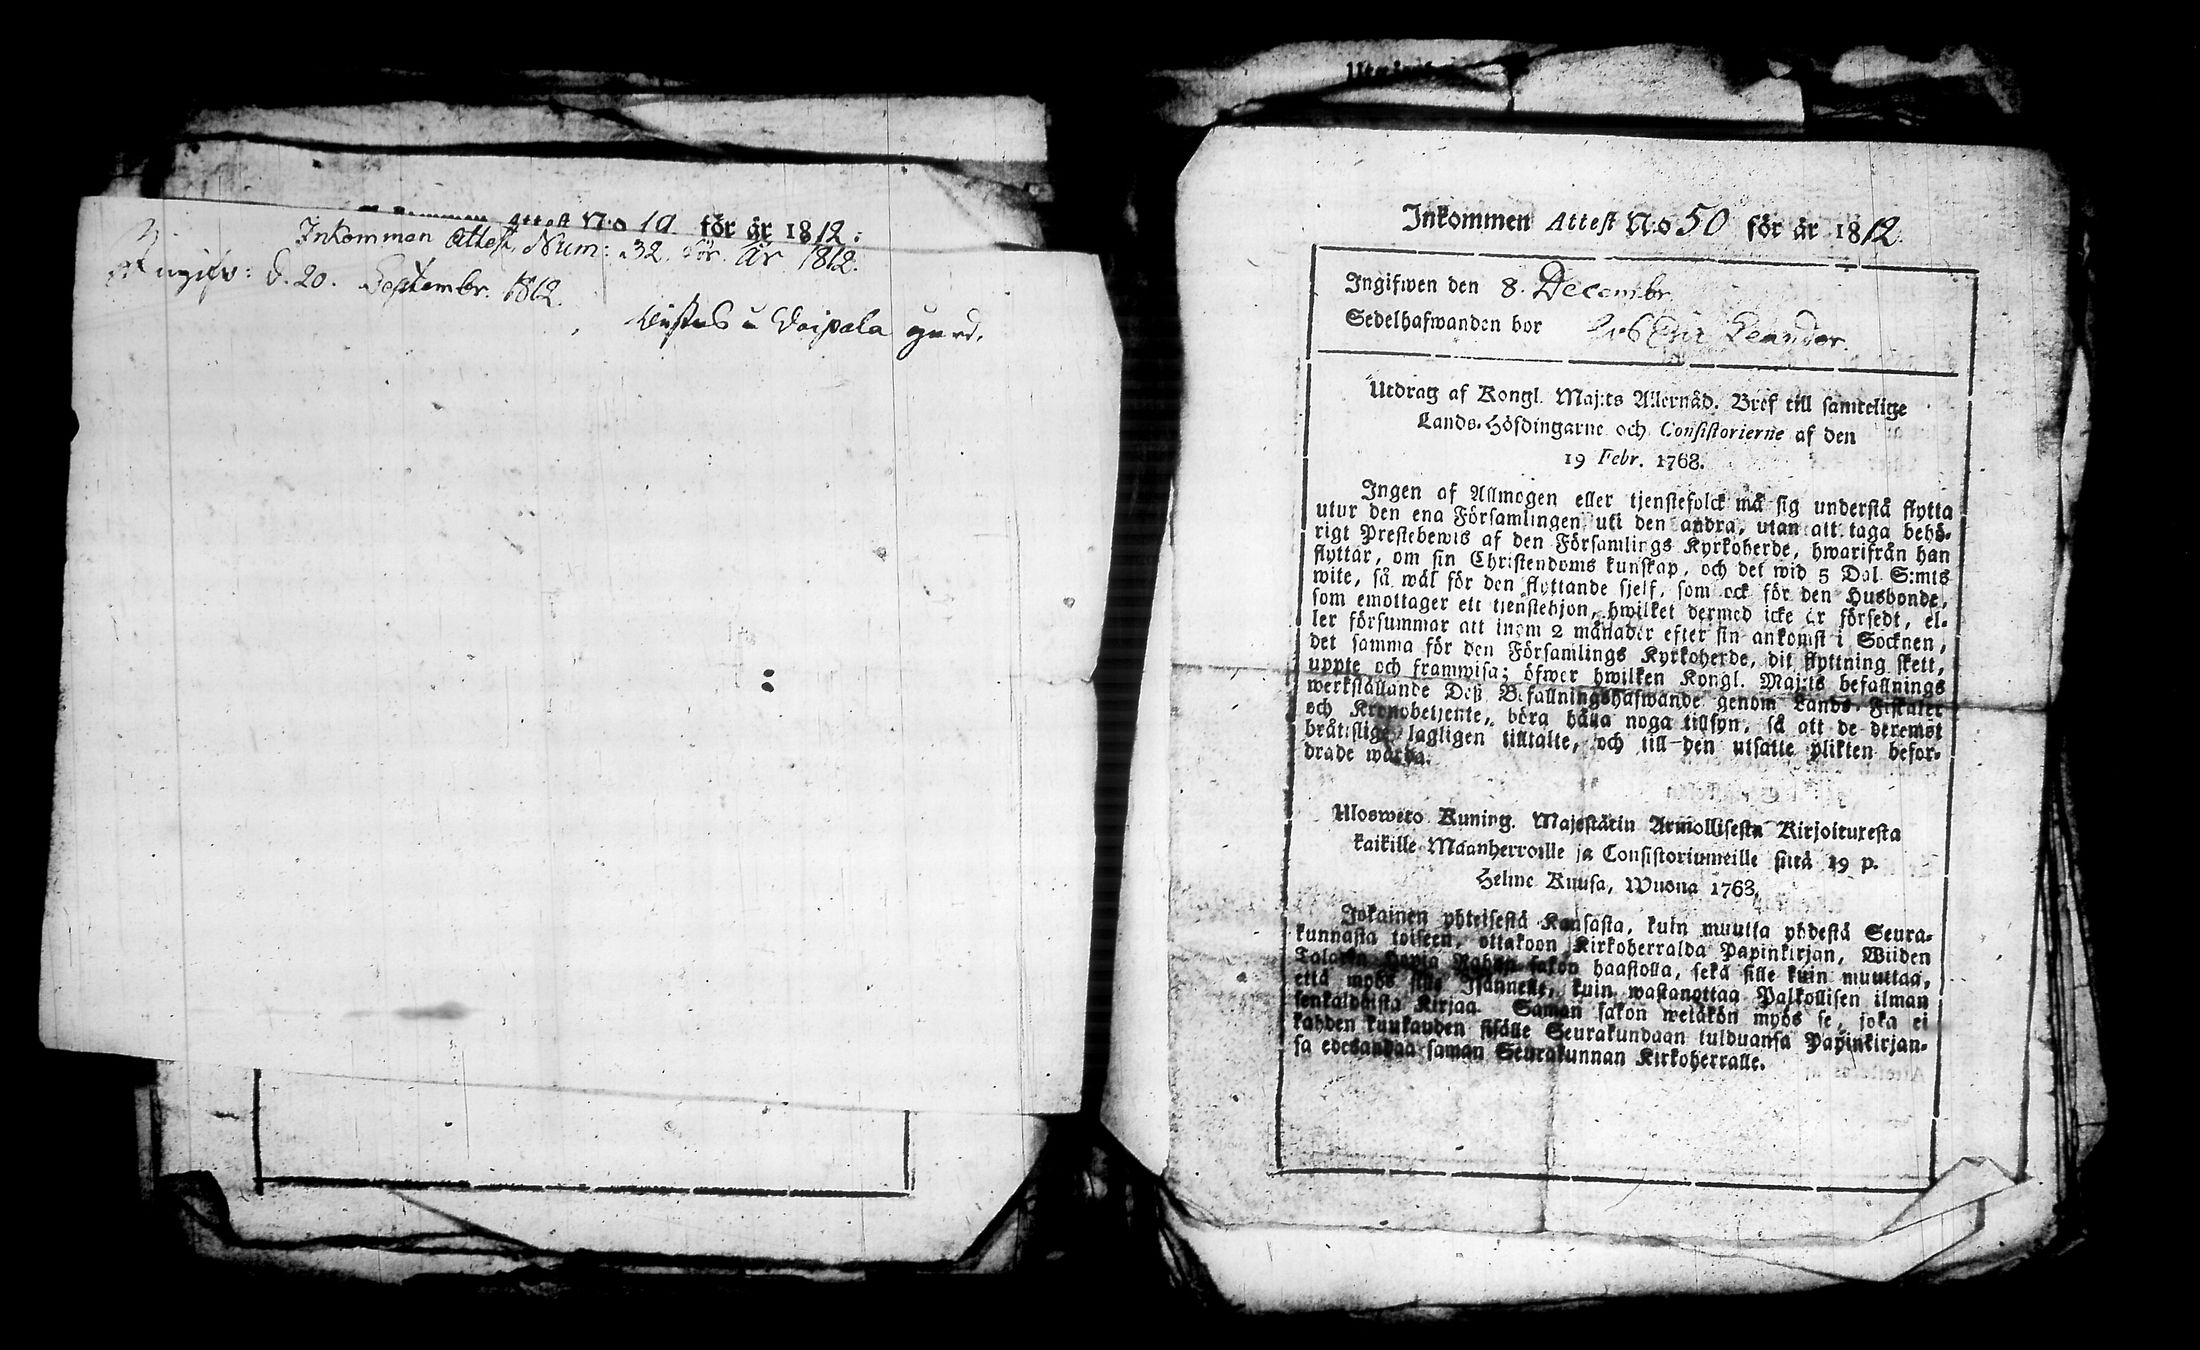 Attest N:o 19. för år 1812:
Inkommen Attest, Num: 32. för. År 1812.
Ingifv: d. 20. Septembr. 1812.
Vaipala gård.
Inkommen Attest N:o 50 för år 1812
Ingifwen den 8. Decembr.
Sedelhafwanden bor Leander.
Utdrag af Kongl. Maj:ts Allernåd. Bref till samtelige
Lands-Höfdingarne och Consistorierne af den
19 Febr. 1768.
Ingen af Allmogen eller tjenstefolck må sig understå flytta
utur den ena Församlingen uti den andra, utan att taga behö-
rigt Prestebewis af den Församlings Kyrkoherde, hwarifrån han
flyttar, om sin Christendoms kunskap, och det wid 5 Dal. S:mts
wite, så wäl för den flyttande sjelf, som ock för den Husbonde,
som emottager ett tjenstehjon, hwilket dermed icke är försedt, el-
ler försummar att inom 2 månader efter sin ankomst i Socknen,
det samma för den Församlings Kyrkoherde, dit flyttning skett,
uppte och framwisa; öfwer hwilken Kongl. Maj:ts befallnings
werkställande Deß Befallningshafwande genom Lands-Fiskaler
och Kronobetjente, böra hålla noga tillsyn, så att de deremot
bråtislige lagligen tilltalte, och till den utsatte plikten befor-
drade warda.
Ulosweto Kuning. Majestätin Armollisesta Kirjoituxesta
kaikille Maanherroille ja Consistoriumeille siitä 19 p.
Helme Kuusa, Wuona 1763.
Jokainen yhteisestä Kansasta, kuin muutta yhdestä Seura-
kunnasta toiseen, ottakoon Kirkoherralda Papinkirjan, Wiiden
Talarin Hopia Rahan sakon haastolla, sekä sille kuin muuttaa,
että myös sille Isännelle, kuin wastanottaa Palkollisen ilman
senkaldaista Kirjaa. Saman sakon wetäkön myös se, joka ei
kahden kuukauden sisälle Seurakundaan tulduansa Papinkirjan-
sa edesandaa saman Seurakunnan Kirkoherralle.